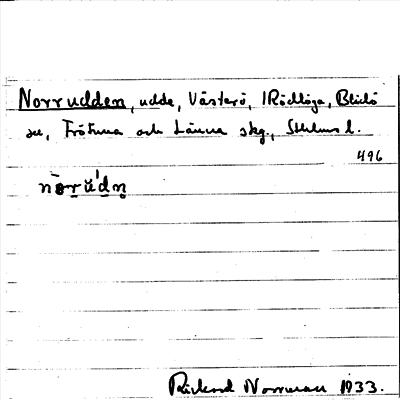 Norrudden, udde, Västerö, I Rödlöga, Blidö
sn, Frötuna och Länna skg., Sthlms l.
496
Rickard Norrman 1933.